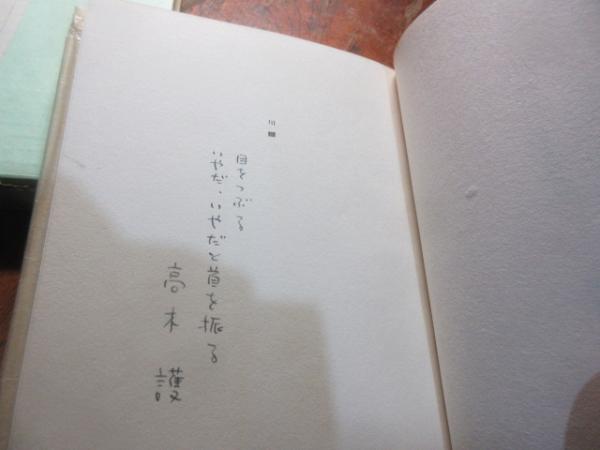 目をつぶる
いやだ、いやだと首を振る
高木護